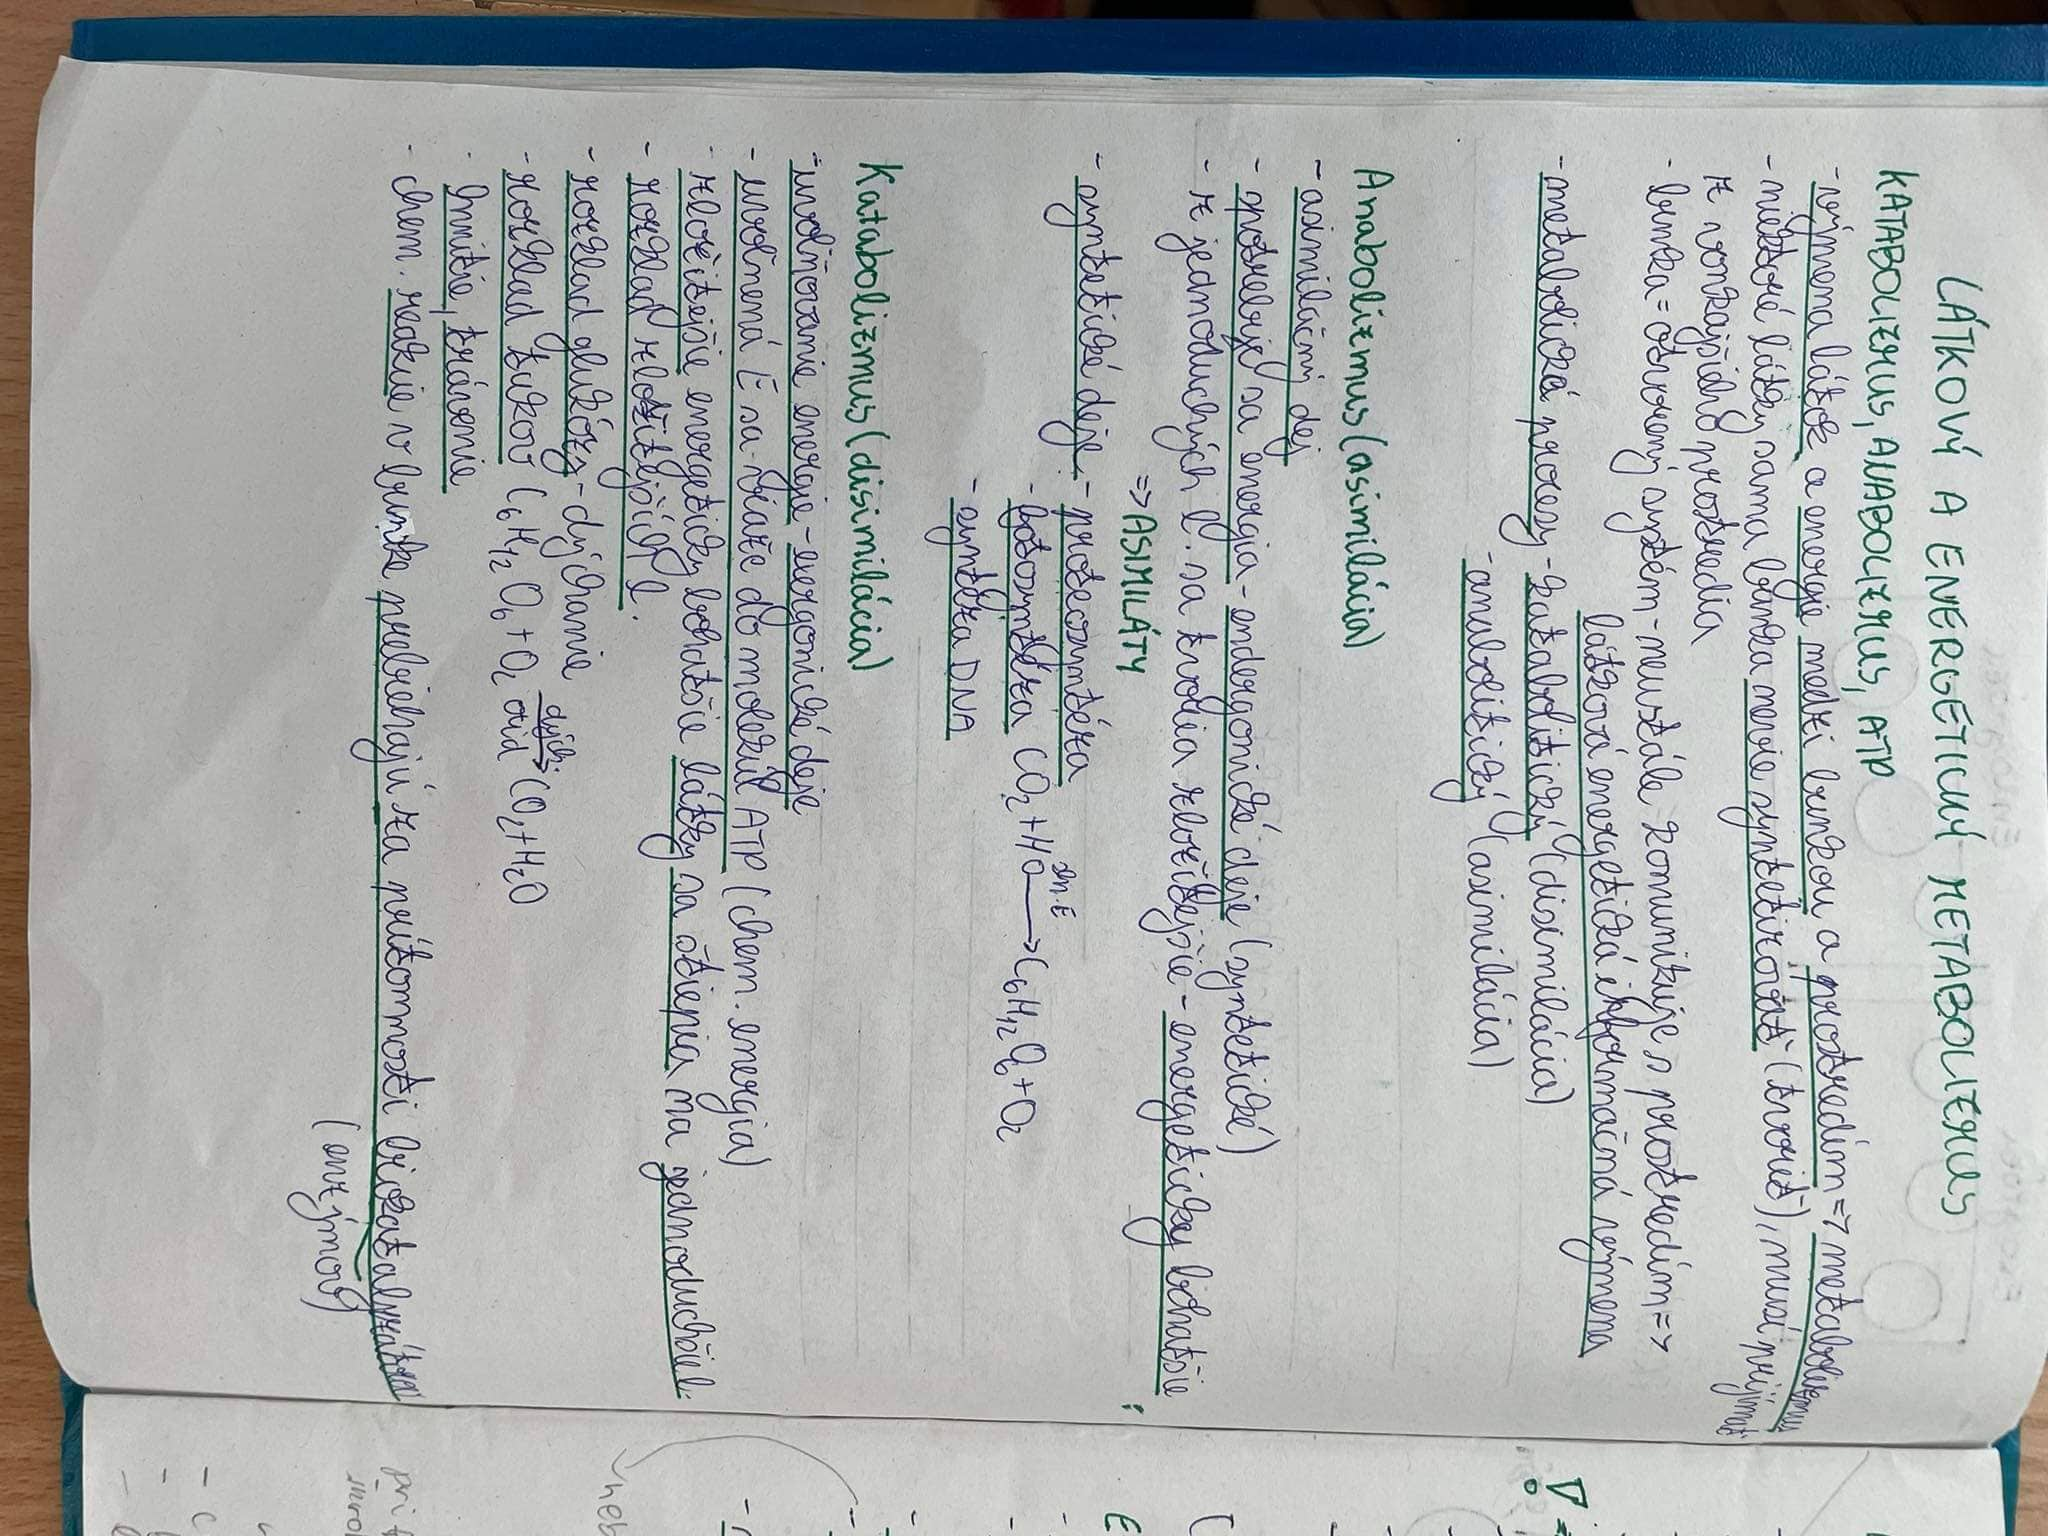 LÁTKOVÝ A ENERGETICKÝ METABOLIZMUS
KATABOLIZMUS, ANABOLIZMUS, ATP
- výmena látok a energie medzi bunkou a prostredím => metabolizmus
- niektoré látky sama bunka nevie syntetizovať (tvoriť), musí prijímať
z vonkajšieho prostredia
- bunka = otvorený systém - neustále komunikuje s prostredím =>
látková energetická informačná výmena
- metabolické procesy - katabolitický (disimilácia)
- anabolitický (asimilácia)
Anabolizmus (asimilácia)
- asimilačný dej
- spotrebuje sa energia - endergonické deje (syntetické)
- z jednoduchých l. sa tvoria zložitejšie - energeticky bohatšie
=> ASIMILÁTY
- syntetické deje - proteosyntéza
- fotosyntéza CO2 + HO → C6H12O6 + O2
sln. E
- syntéza DNA
Katabolizmus (disimilácia)
- uvoľňovanie energie - exergonické deje
- uvoľnená E sa viaže do molekúl ATP (chem. energia)
- zložitejšie energeticky bohatšie látky sa štiepia na jednoduchšie l.
- rozklad zložitejších l.
- rozklad glukózy - dýchanie
- rozklad cukrov C6H12O6 + O2 → CO2 + H2O
dých.
oxid
- hnitie, trávenie
- chem. reakcie v bunke prebiehajú za prítomnosti biokatalyzátorov
(enzýmov)